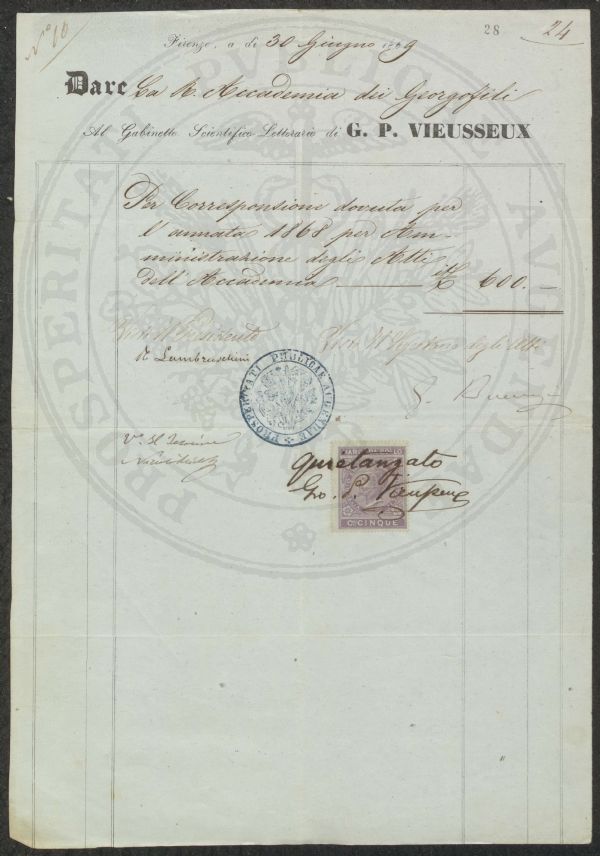 N° 10
28
24
Firenze, a dì 30 Giugno 1869
Dare La R. Accademia dei Georgofili
Al Gabinetto Scientifico-Letterario di G. P. VIEUSSEUX
Per Corresponsione dovuta per
l'annata 1868 per Am-
ministrazione degli Atti
Dell'Accademia — 600.—
Visto Il Presidente
R Lambruschini
degli Atti
PROSPERITATI PUBLICAE AUGENDAE
V° Il
MARCA DA BOLLO
Quietanzato
Gio. P. Vieusseux
C. CINQUE
PROSPERITATI PUBLICAE AUGENDAE